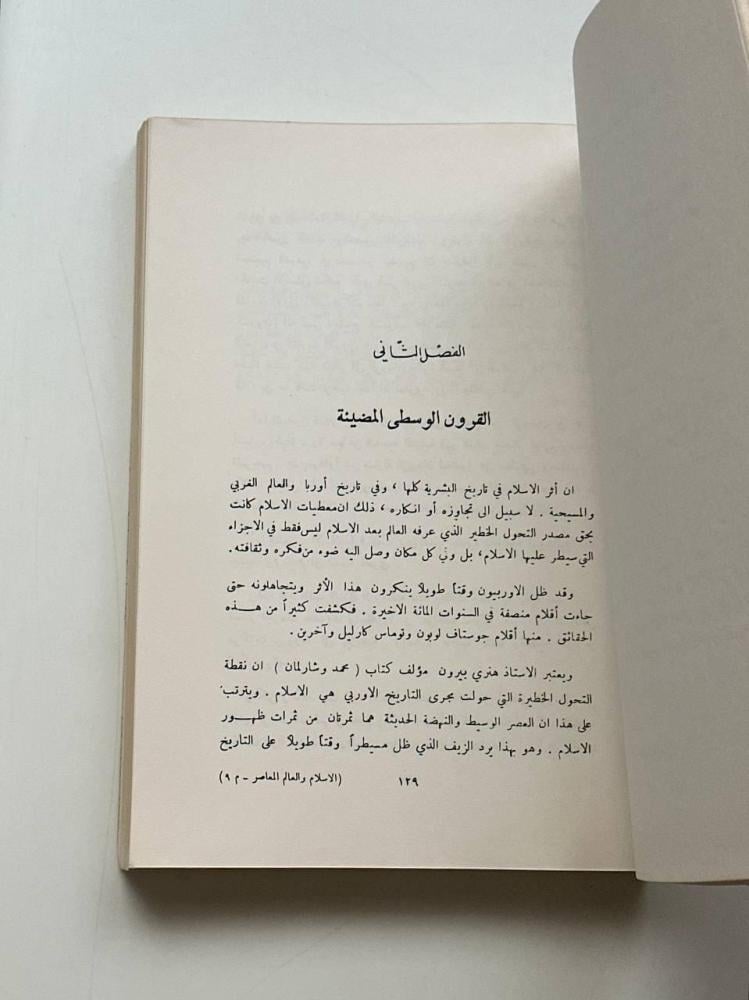 الفصل الثاني
القرون الوسطى المضيئة
ان أثر الاسلام في تاريخ البشرية كلها ، وفي تاريخ أوربا والعالم الغربي
والمسيحية . لا سبيل الى تجاوزه أو انكاره ، ذلك ان معطيات الاسلام كانت
بحق مصدر التحول الخطير الذي عرفه العالم بعد الاسلام ليس فقط في الاجزاء
التي سيطر عليها الاسلام، بل وفي كل مكان وصل اليه ضوء من فكره وثقافته.
وقد ظل الاوربيون وقتاً طويلاً ينكرون هذا الأثر ويتجاهلونه حتى
جاءت أقلام منصفة في السنوات المائة الاخيرة . فكشفت كثيراً من هذه
الحقائق . منها أقلام جوستاف لوبون وتوماس كارليل وآخرين .
ويعتبر الاستاذ هنري بيرون مؤلف كتاب ( محمد وشارلمان ) ان نقطة
التحول الخطيرة التي حولت مجرى التاريخ الاوربي هي الاسلام . ويترتب
على هذا ان العصر الوسيط والنهضة الحديثة هما ثمرتان من ثمرات ظهور
الاسلام . وهو بهذا يرد الزيف الذي ظل مسيطراً وقتاً طويلاً على التاريخ
١٢٩ (الاسلام والعالم المعاصر - م ٩)